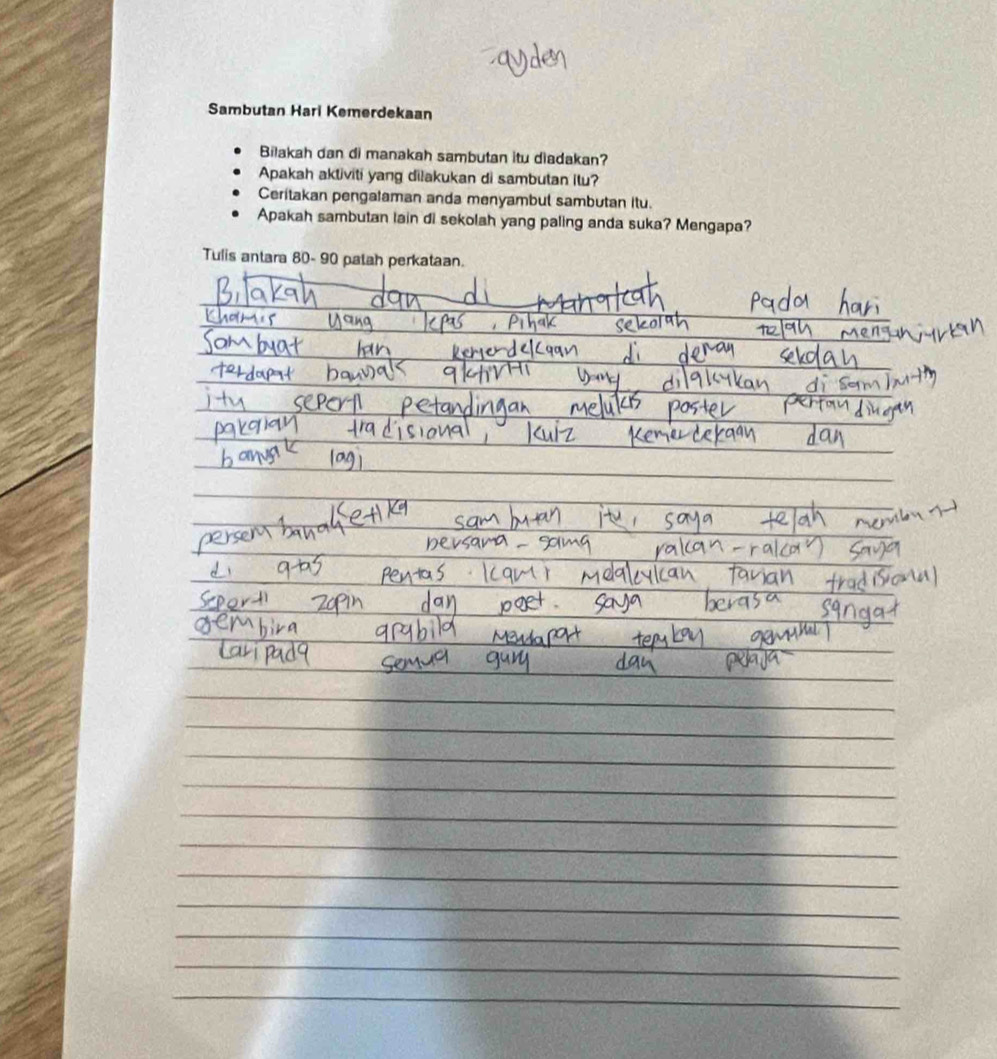 ayden
Sambutan Hari Kemerdekaan
• Bilakah dan di manakah sambutan itu diadakan?
• Apakah aktiviti yang dilakukan di sambutan itu?
• Ceritakan pengalaman anda menyambut sambutan itu.
• Apakah sambutan lain di sekolah yang paling anda suka? Mengapa?
Tulis antara 80- 90 patah perkataan.
Bilakah dan di manakah pada hari
khamis yang lepas, Pihak sekolah telah menganjurkan
sambuat han kemerdekaan di deway sekolah
terdapat banyak aktiviti yang dilakukan di sambutan
itu seperti petandingan melukis poster pertandingan
pakaian tradisional, kuiz kemerdekaan dan
banyak lagi
ketika sambutan itu, saya telah membuat
persembanah bersama-sama rakan-rakan saya
di atas pentas. kami melakukan tarian tradisional
seperti zapin dan poet. saya berasa sangat
gembira apabila mendapat tepukan gemuruh
daripada semua guru dan pelaja